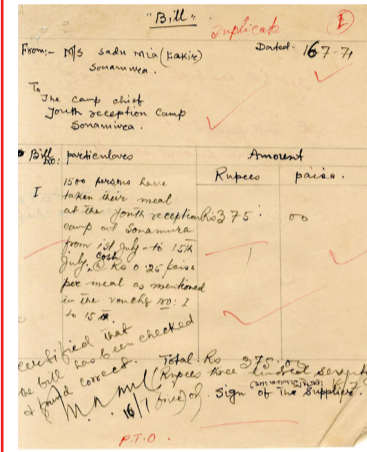 "Bill"
Duplicate
1
From:- M/s Sadu Mia (Fakir)
Sonamura.
Dated- 16 7-71
To
The camp chief
Youth reception Camp
Sonamura.
Bill No: particulars Amount
Rupees paisa.
I
1500 persons have
taken their meal
at the youth reception Rs 375: 00
camp at Sonamura
from 1st July - to 15th
July. Cost
@ Rs 0.25 paise
per meal as mentioned
in the vouchs No: I
to 15
Certified that
the bill has been checked
& found correct.
Total Rs 375.00
Rupees three hundred seventy
five) only.
16/7
Sign of The Supplier.
P.T.O.